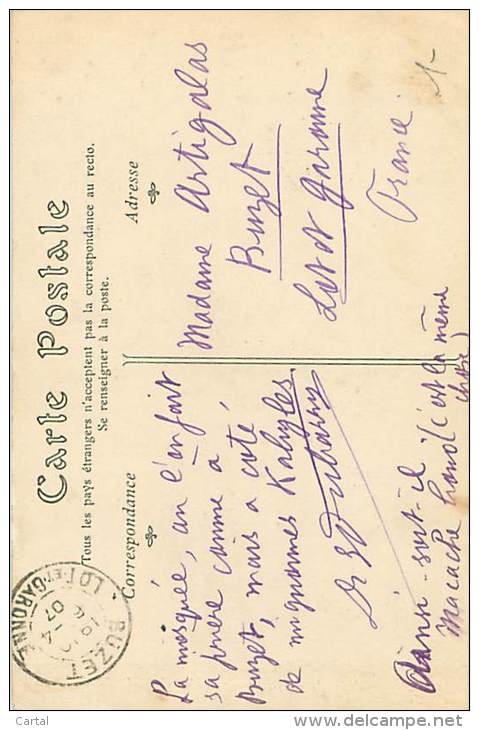 Carte Postale
Tous les pays étrangers n'acceptent pas la correspondance au recto.
Se renseigner à la poste.
Correspondance
Adresse
La mosquée, an l'on fait
sa prière comme à
Buzet, mais a coté,
de mignonnes Kabyles
Dr Dubarry
Ainsi-soit-il
Macache (c'est la même
chose)
Madame Artigalas
Buzet
Lot et Garonne
France
1-
BUZET
LOT ET GARONNE
14
07
Cartal
www.delcampe.net